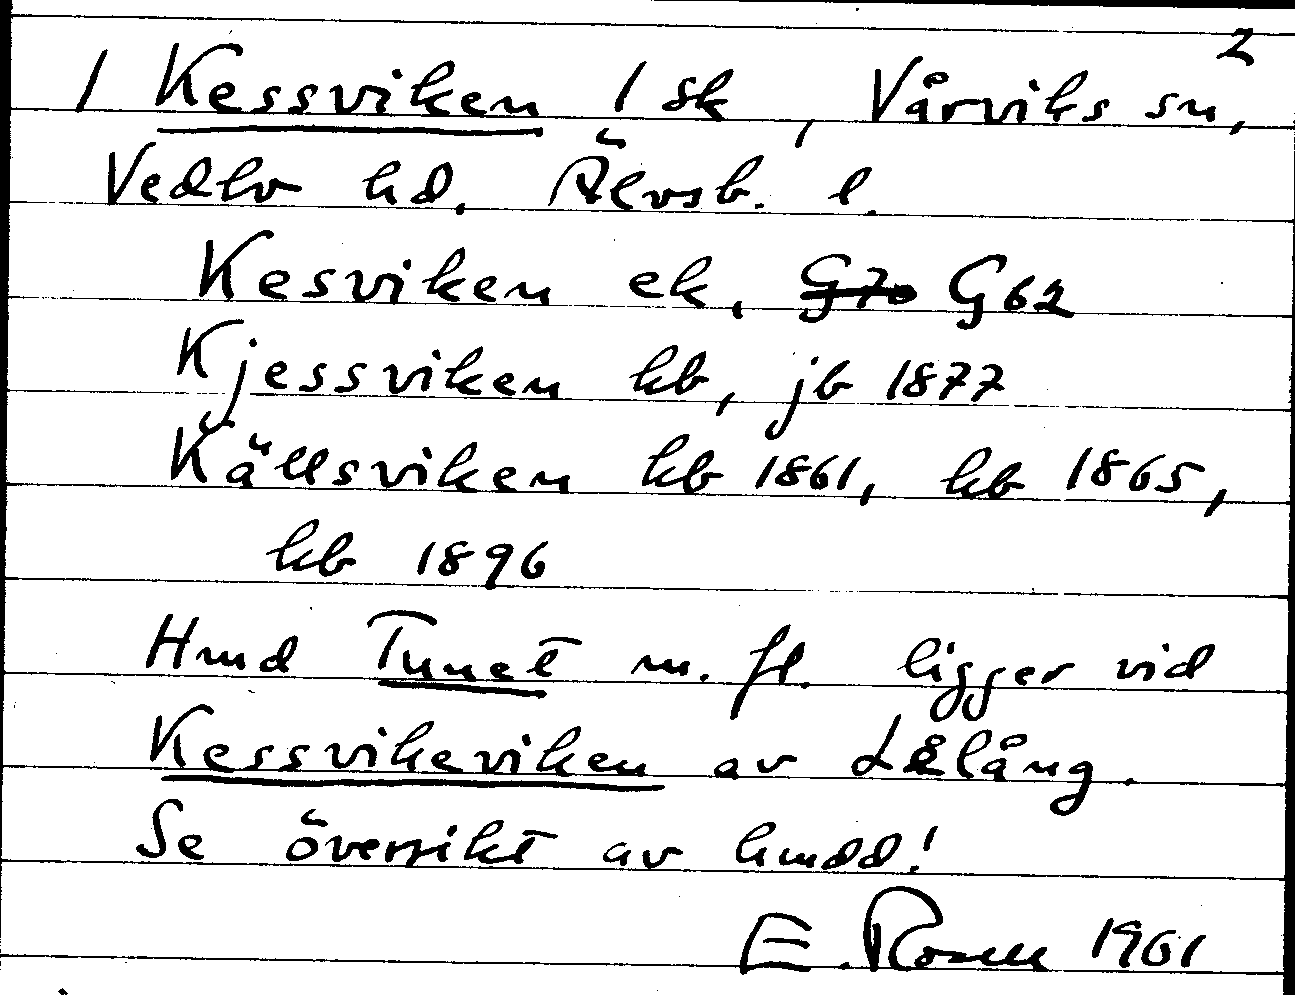 2
1 Kessviken 1 sk, Vårviks sn,
Vedbo hd. Älvsb. l.
Kesviken ek, G70 G62
Kjessviken kb, jb 1877
Källsviken kb 1861, kb 1865,
kb 1896
Hmd Tunet m. fl. ligger vid
Kessvikeviken av Lelång.
Se översikt av hmdd!
E. Rosell 1961